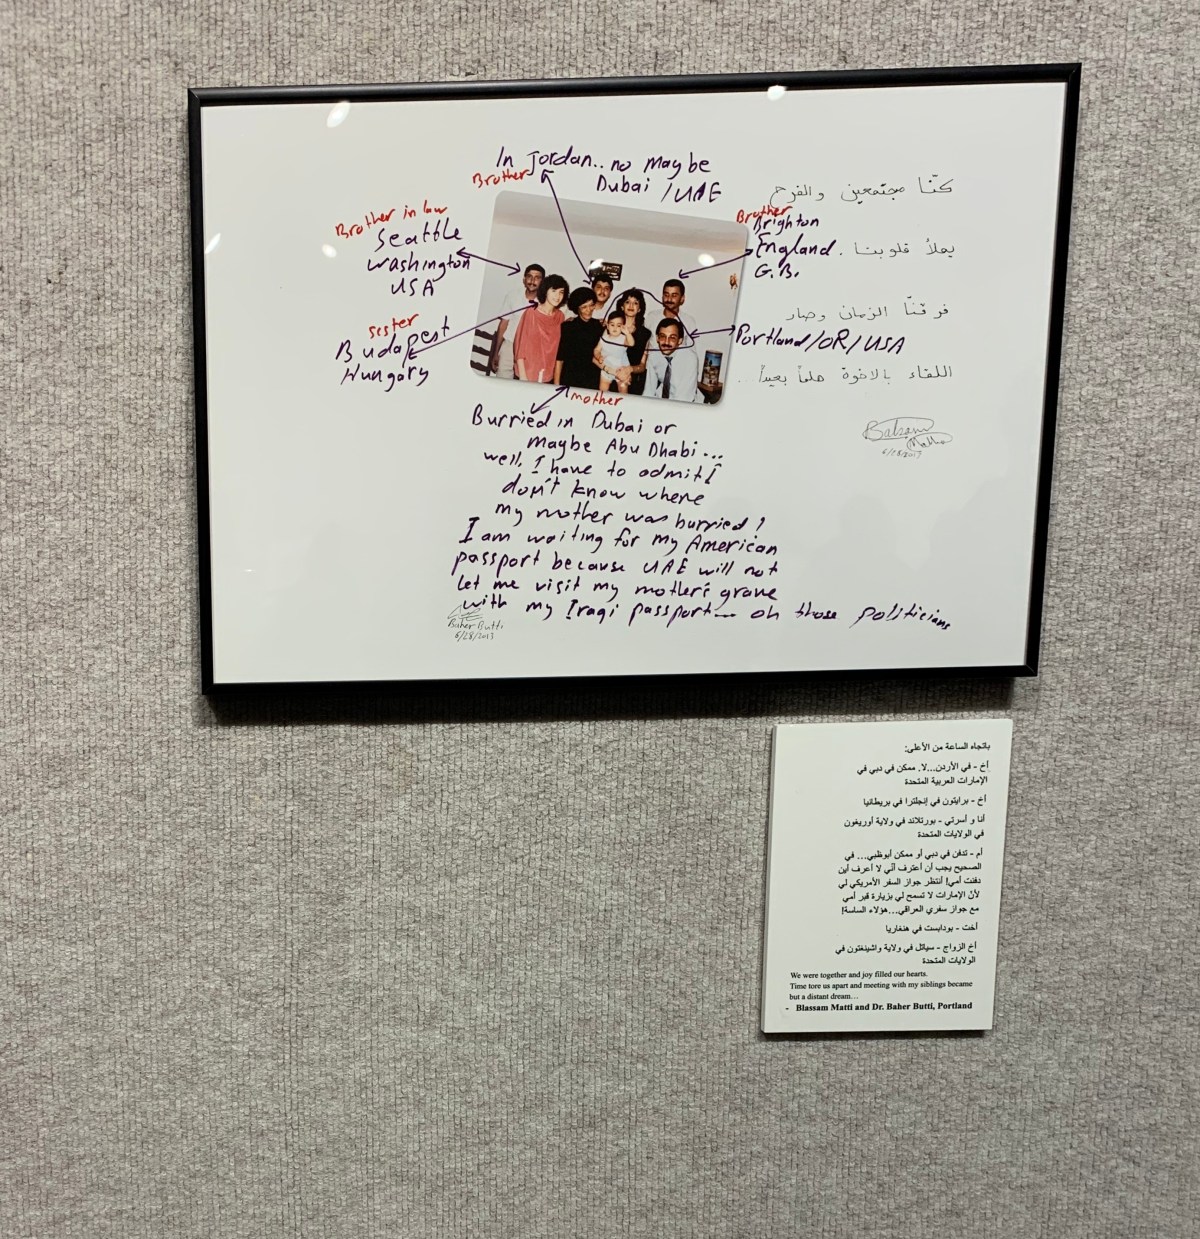 In Jordan.. no maybe
Dubai /UAE
Brother
Brother in law
Seattle
Washington
USA
sester
Budapest
Hungary
Brother
Brighton
England
G.B.
Portland/OR/USA
mother
Burried in Dubai or
maybe Abu Dhabi...
well, I have to admit I
don't know where
my mother was burried!
I am waiting for my American
passport because UAE will not
let me visit my mother's grave
with my Iraqi passport... oh those politicians
Baher Butti
6/28/2013
كنّا مجتمعين والفرح
يملأ قلوبنا.
فرقنّا الزمان وصار
اللقاء بالاخوة حلماً بعيداً...
6/28/2013
باتجاه الساعة من الأعلى:
أخ - في الأردن...لا. ممكن في دبي في
الإمارات العربية المتحدة
أخ - برايتون في إنجلترا في بريطانيا
أنا و أسرتي - بورتلاند في ولاية أوريغون
في الولايات المتحدة
أم - تدفن في دبي أو ممكن أبوظبي... في
الصحيح يجب أن أعترف أنّي لا أعرف أين
دفنت أمي! أنتظر جواز السفر الأمريكي لي
لأنّ الإمارات لا تسمح لي بزيارة قبر أمي
مع جواز سفري العراقي...هؤلاء الساسة!
أخت - بودابست في هنغاريا
أخ الزواج - سياتل في ولاية واشينغتون في
الولايات المتحدة
We were together and joy filled our hearts.
Time tore us apart and meeting with my siblings became
but a distant dream…
- Blassam Matti and Dr. Baher Butti, Portland